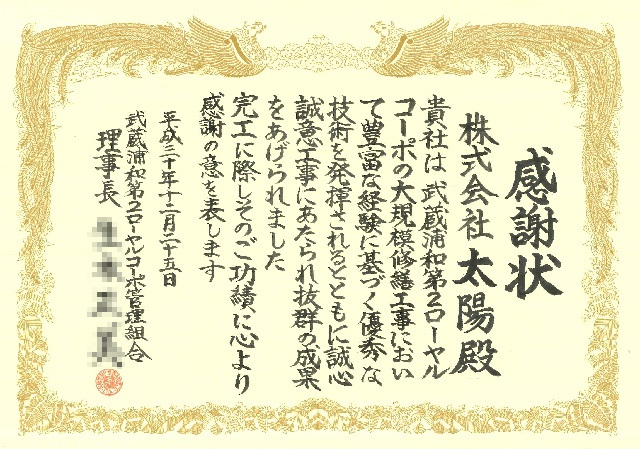 感謝状
株式会社 太陽殿
貴社は武蔵浦和第2ローヤル
コーポの大規模修繕工事におい
て豊富な経験に基づく優秀な
技術を発揮されるとともに誠心
誠意工事にあたられ抜群の成果
をあげられました
完工に際しそのご功績に心より
感謝の意を表します
平成三十年十二月二十五日
武蔵浦和第2ローヤルコーポ管理組合
理事長